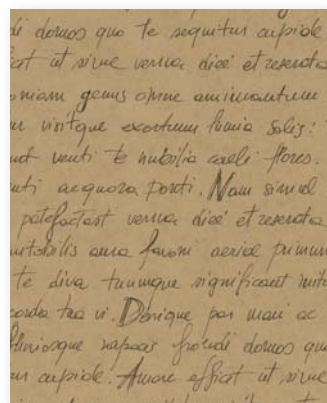 di domos quo te sequitur cupide
ficat ut sive verna diei et reserata
oniam genus omne animantum
ur visitque exortum lumia solis:
unt venti te nubilia caeli flores.
nti aequora ponti. Nam simul
patefactast verna diei et reserata
nitabilis aura favoni aeriae primum
te diva tuumque significant initu
corda tua vi. Denique par mari ac
fluviosque rapacis frondi domos quo
ur cupide. Amore efficat ut sive